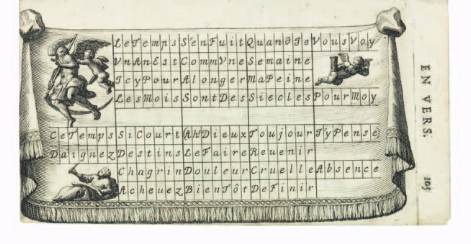 LeTempsS'enFuitQuandJeVousVoy
VnAnEstCommVneSemaine
IcyPourAlongerMaPeine
LesMoisSontDesSieclesPourMoy
CeTempsSiCourtAhDieuxToujourJ'yPense
DaignezDestinsLeFaireReuenir
ChagrinDouleurCruelleAbsence
AcheuezBienTôtDeFinir
EN VERS.
105